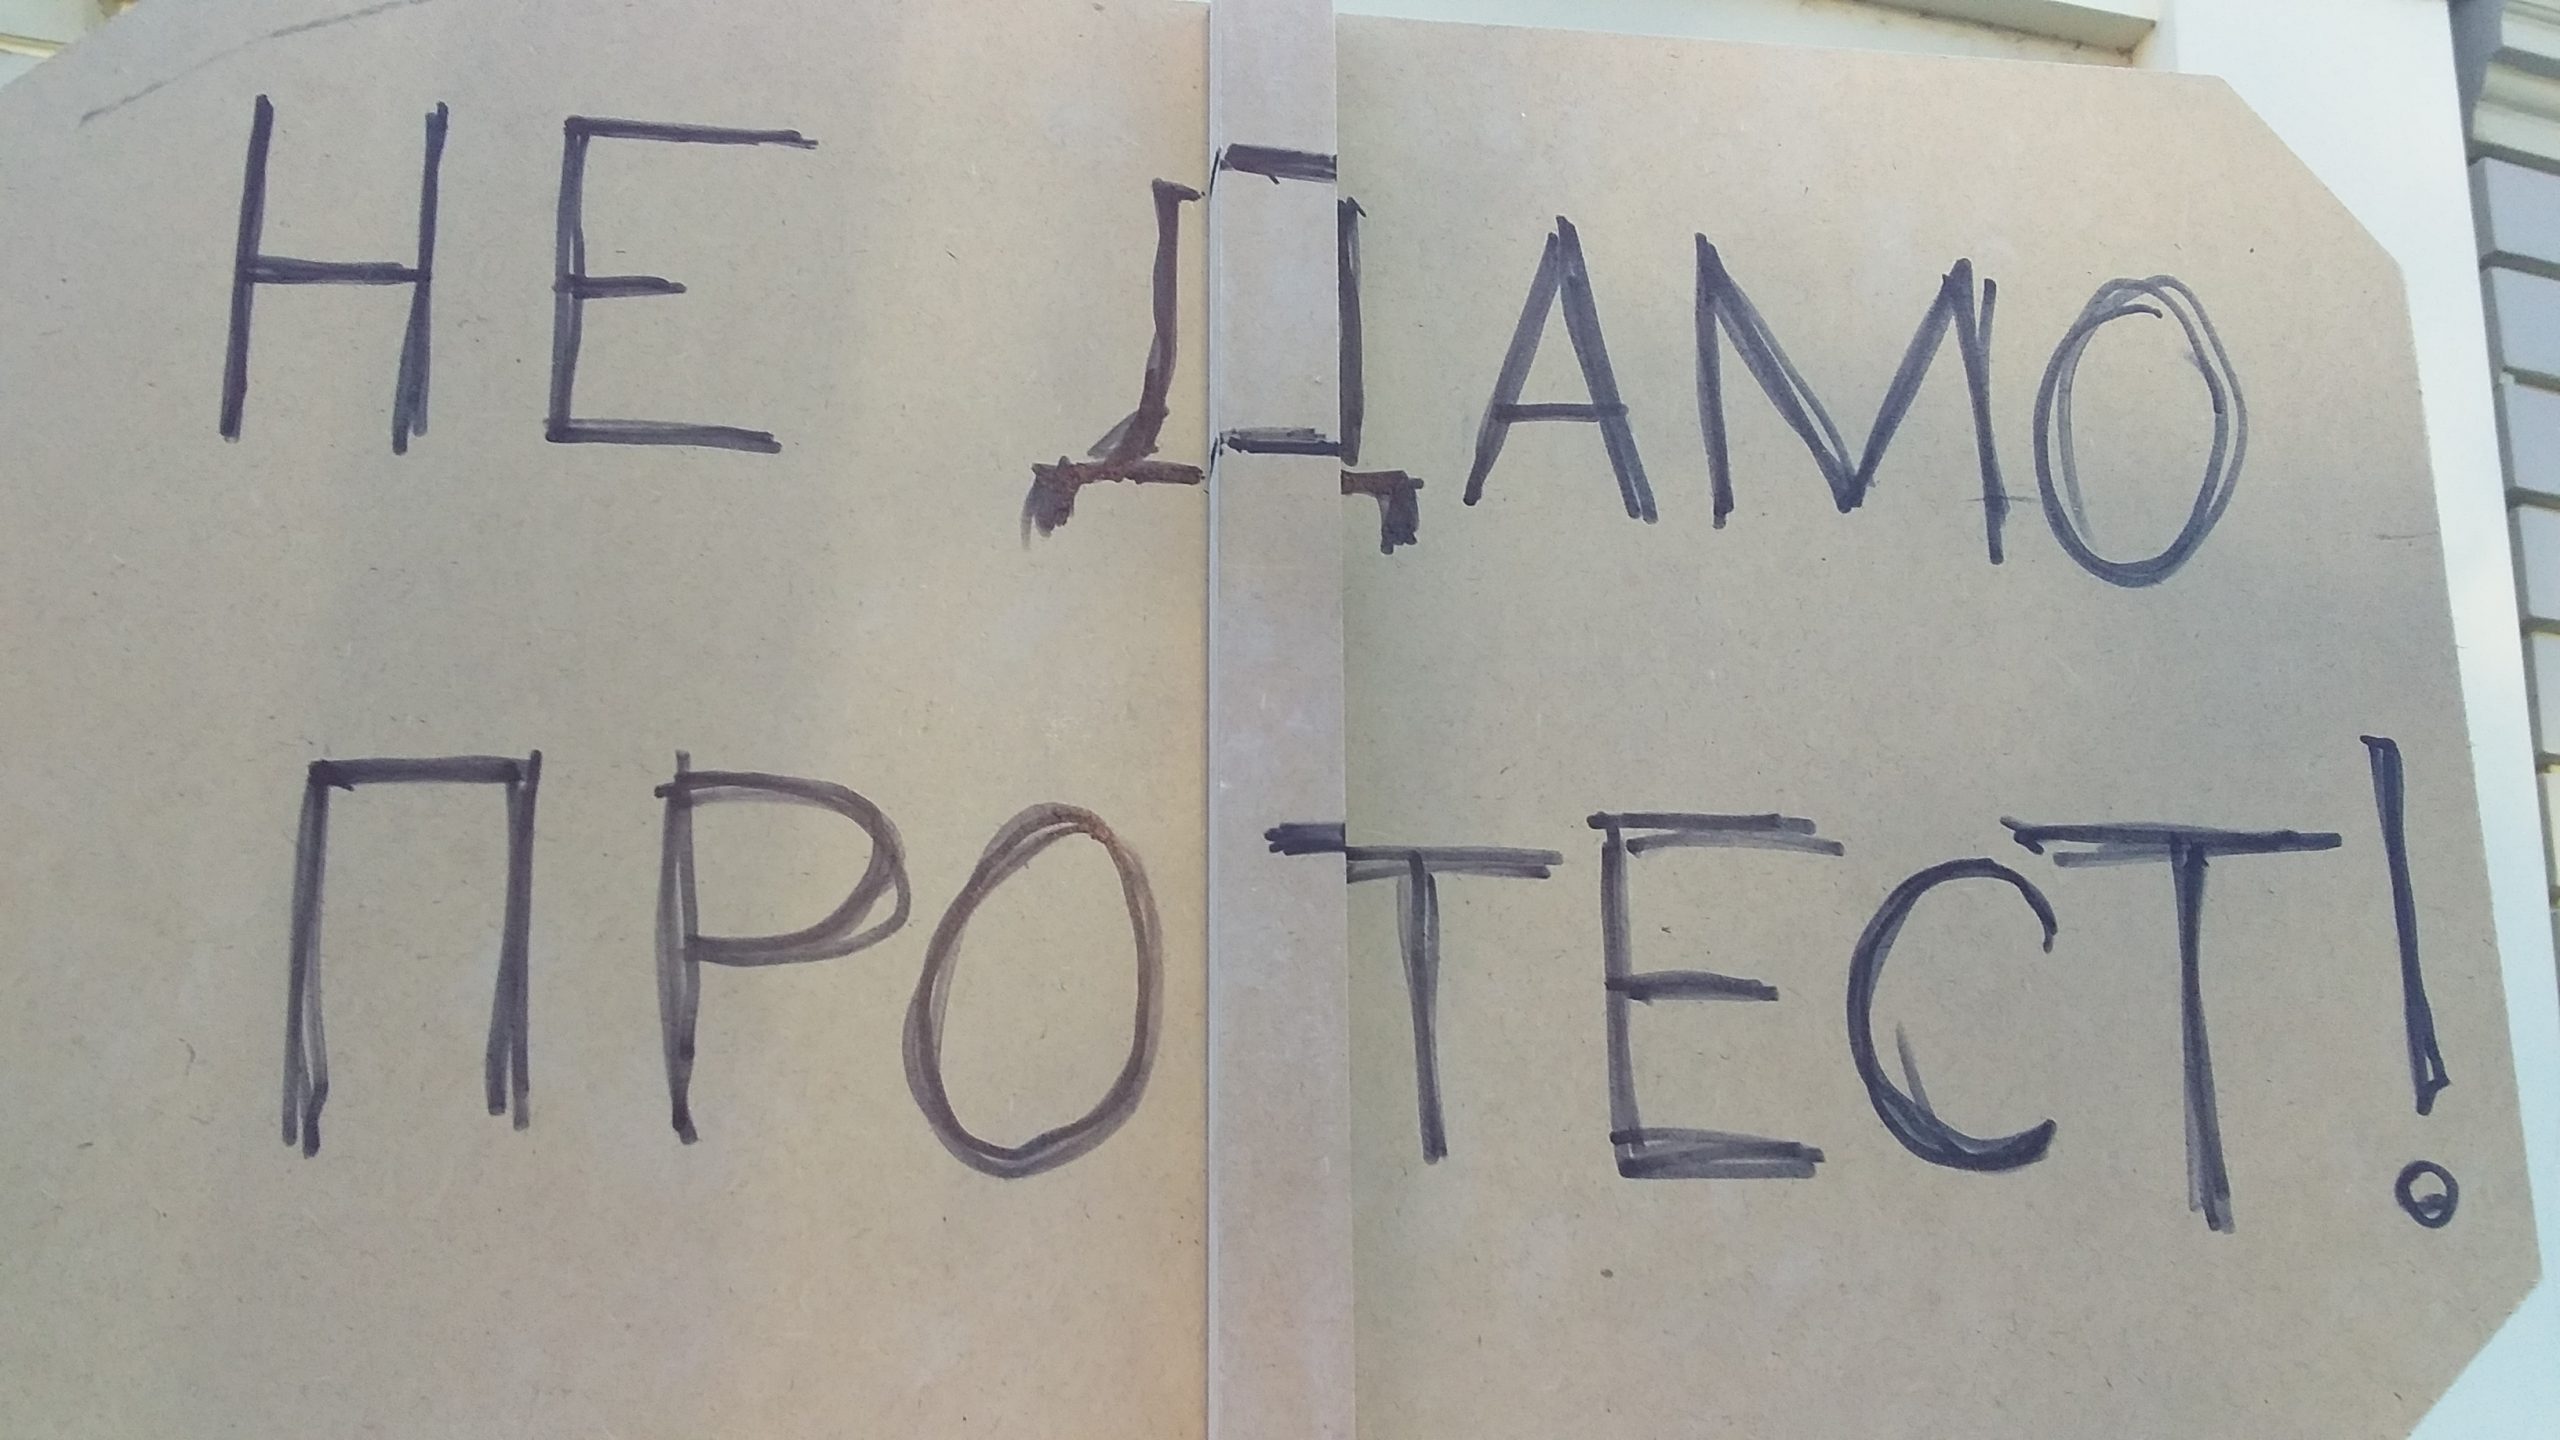 НЕ ДАМО
ПРОТЕСТ!